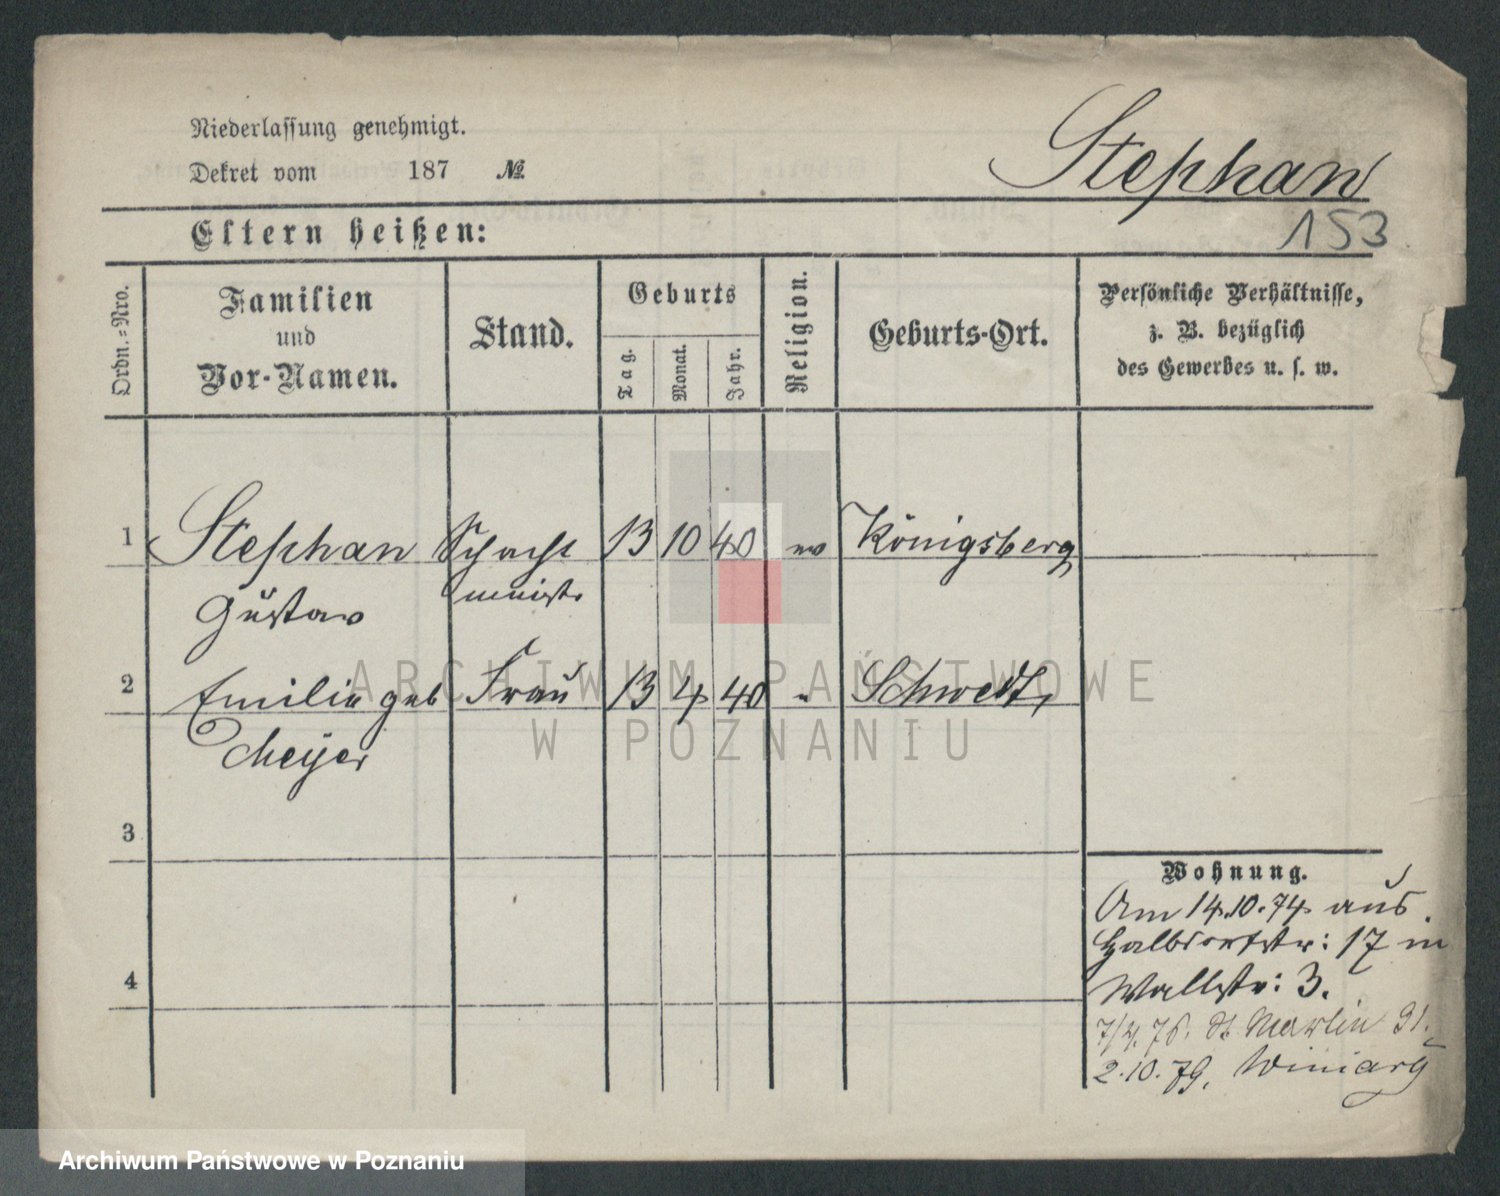 Niederlassung genehmigt.
Dekret vom 187 №
Stephan
153
Eltern heißen:
Ordn.-Nro.
Familien
und
Vor-Namen.
Stand.
Geburts
Tag.
Monat.
Jahr.
Religion.
Geburts-Ort.
Persönliche Verhältnisse,
z. B. bezüglich
des Gewerbes u. s. w.
1 Stephan Schacht 13 10 40 ev Königsberg
Gustav meistr
2 Emilie geb Frau 13 4 40 " Schwedt
Meyer
3
4
Wohnung.
Am 14.10.74 aus
Halbdorfstr: 17 in
Wallstr: 3.
St Martin
2.10.79. Winiary
ARCHIWUM PAŃSTWOWE
W POZNANIU
Archiwum Państwowe w Poznaniu